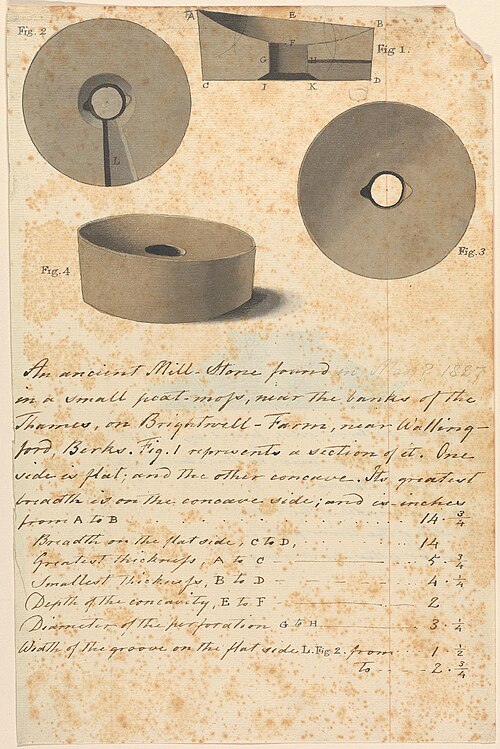 Fig. 2
A
E
B
Fig 1.
F
G
H
C
I
K
D
L
Fig. 4
Fig. 3
An ancient Mill-Stone found in 1827
in a small peat-moss, near the banks of the
Thames, on Brightwell-Farm, near Walling-
ford, Berks. Fig. 1 represents a section of it. One
side is flat; and the other concave. Its greatest
breadth is on the concave side; and is inches
from A to B 14 3/4
Breadth on the flat side, C to D, 14
Greatest thickness, A to C 5 3/4
Smallest thickness, B to D 4 1/4
Depth of the concavity, E to F 2
Diameter of the perforation G to H 3 1/4
Width of the groove on the flat side L. Fig 2. from 1 1/2
to 2 3/4